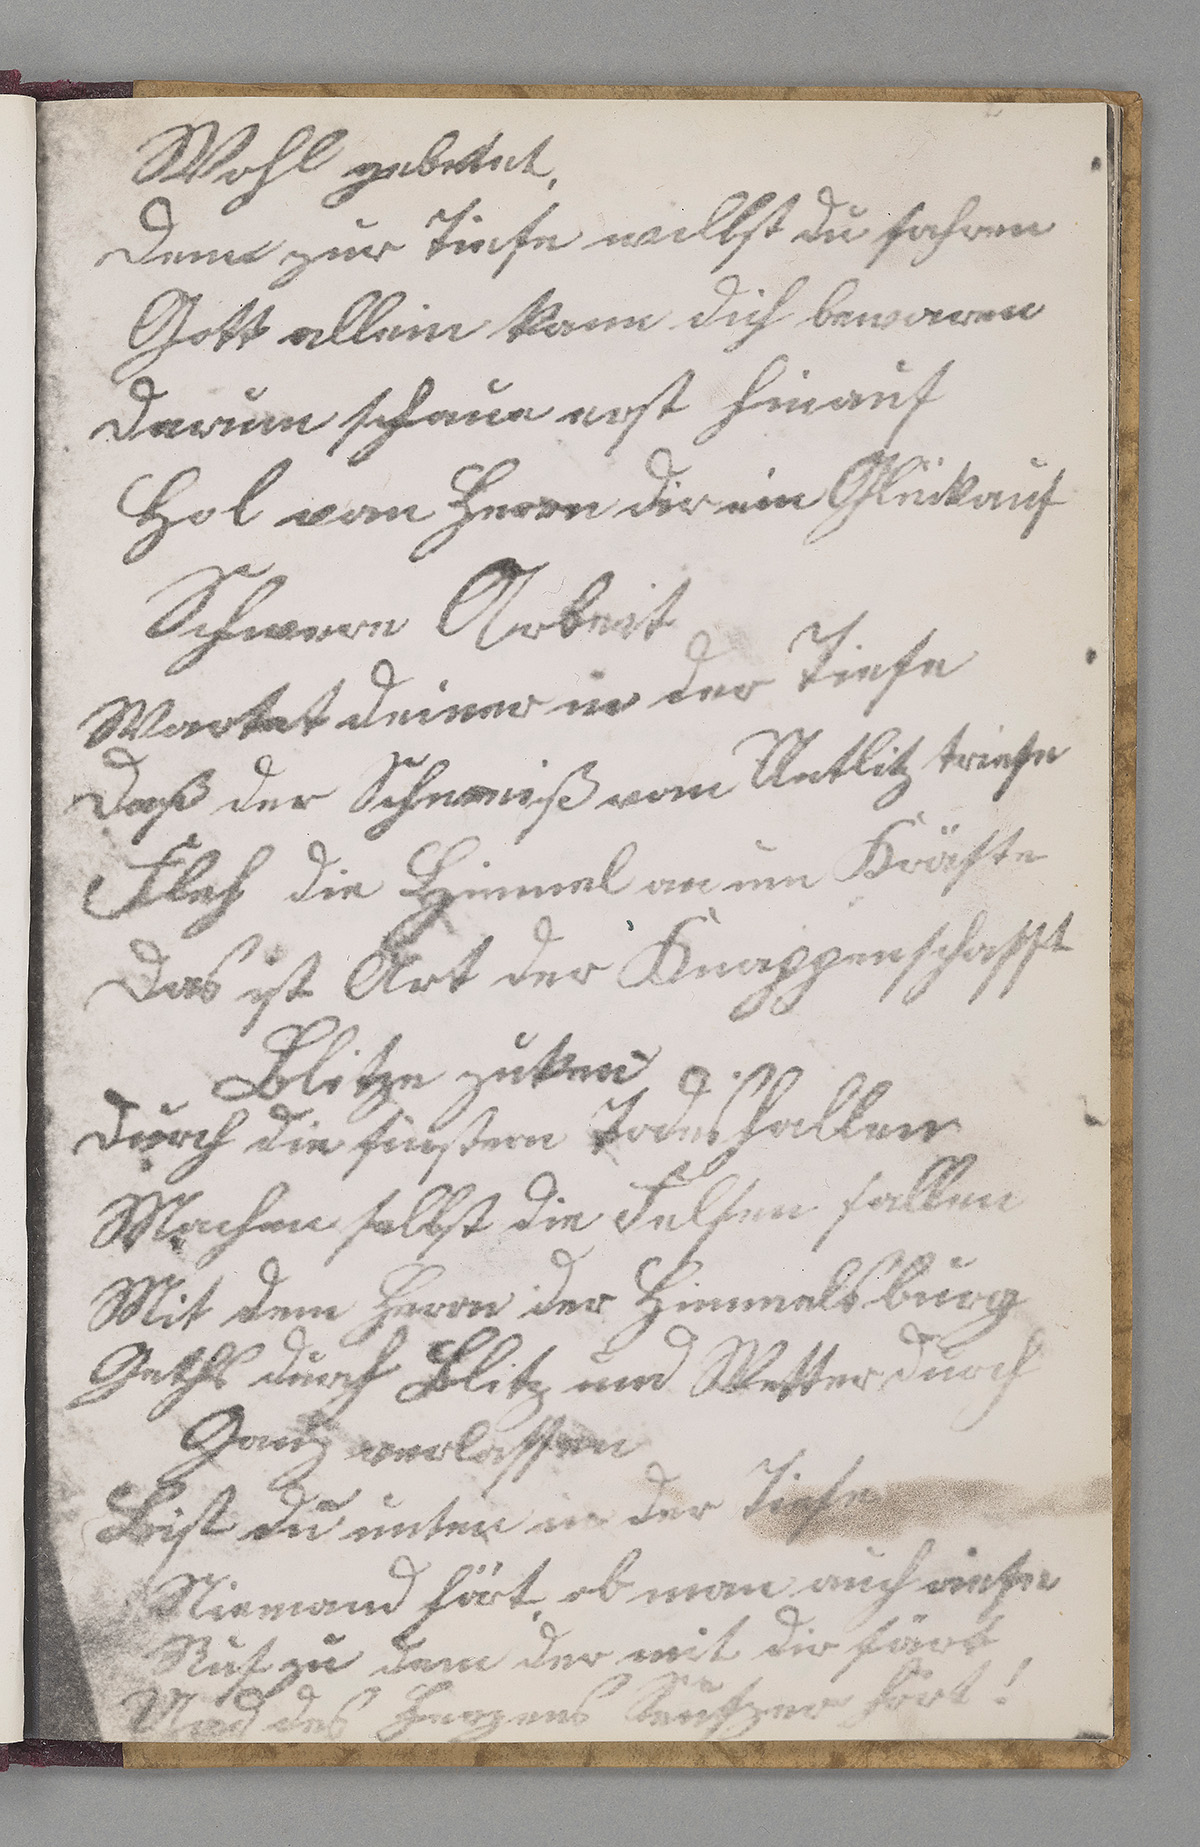 Wohl gebetet,
Denn zur Tiefe willst du fahren
Gott allein kann dich bewaren
Darum schaue erst hinauf
Hol vom Herrn dir ein Glückauf
Schwere Arbeit
Wartet deiner in der Tiefe
Daß der Schweiß vom Antlitz triefe
Fleh die Himmel an um Kräfte
Das ist Art der Knappenschafft
Blitze zuken
Durch die finstern Todeshallen
Machen selbst die Felsen fallen
Mit dem Herrn der Himmelsburg
Gehts durch Blitz und Wetter durch
Ganz verlassen
Bist du unten in der Tiefe
Niemand hört, ob man auch riefe
Ruf zu dem der mit dir färt
Und des Herzens Seufzer hört!